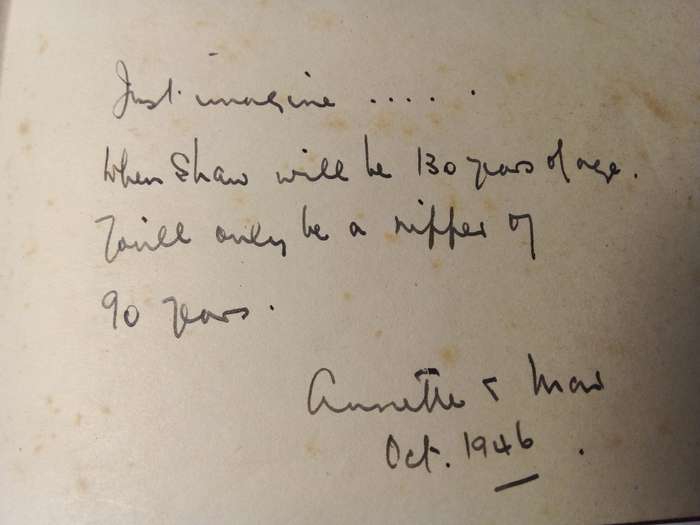 Just imagine .....
When Shaw will be 130 years of age.
You'll only be a nipper of
90 years.
Annette & Max
Oct. 1946.